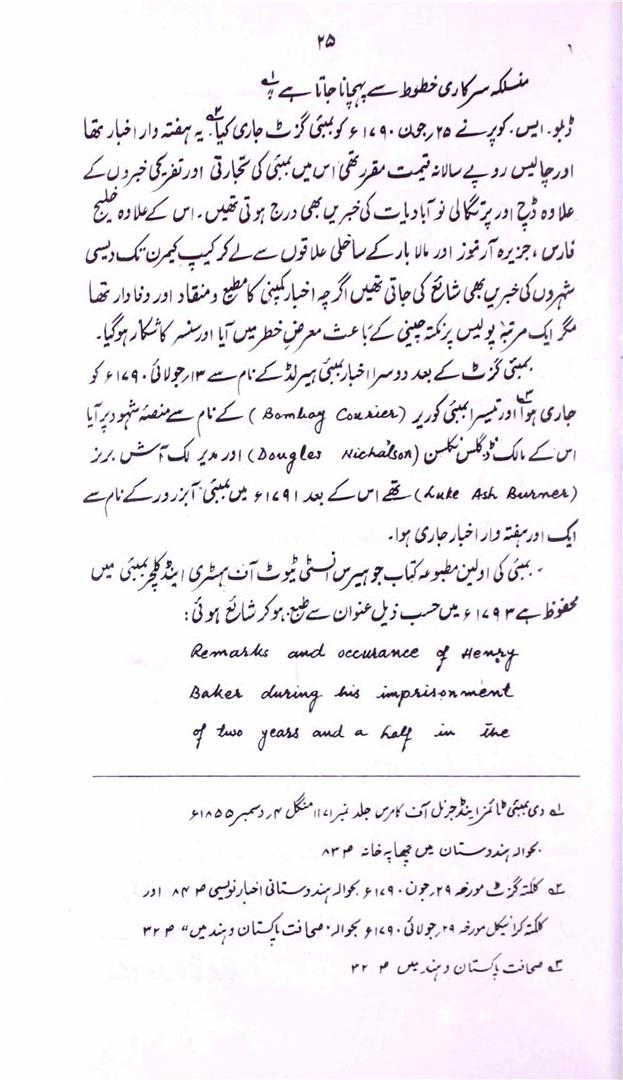 ۲۵
منسلکہ سرکاری خطوط سے پہچانا جاتا ہے ؂۱
ڈبلو۔ ایس۔ کوپر نے ۲۵؍جون ۱۷۹۰ء کو بمبئی گزٹ جاری کیا؂۲ یہ ہفتہ وار اخبار تھا
اور چالیس روپے سالانہ قیمت مقرر تھی اس میں بمبئی کی تجارتی اور تفریحی خبروں کے
علاوہ ڈچ اور پرتگالی نوآبادیات کی خبریں بھی درج ہوتی تھیں۔ اس کے علاوہ خلیج
فارس، جزیرہ آرموز اور مالا بار کے ساحلی علاقوں سے لے کر کیپ کیمرن تک دیسی
شہروں کی خبریں بھی شائع کی جاتی تھیں اگرچہ اخبار کمپنی کا مطیع و منقاد اور وفادار تھا
مگر ایک مرتبہ پولیس پر نکتہ چینی کے باعث معرضِ خطر میں آیا اور سنسر کا شکار ہوگیا۔
بمبئی گزٹ کے بعد دوسرا اخبار بمبئی ہیرلڈ کے نام سے ۱۳؍جولائی ۱۷۹۰ء کو
جاری ہوا؂۳ اور تیسرا بمبئی کوریر (Bombay Courier) کے نام سے منصۂ شہود پر آیا
اس کے مالک ڈگلس نکلسن (Dougles Nichalson) اور مدیر لک آش برنر
(Luke Ash Burner) تھے اس کے بعد ۱۷۹۱ء میں بمبئی آبزرور کے نام سے
ایک اور ہفتہ وار اخبار جاری ہوا۔
بمبئی کی اولین مطبوعہ کتاب جو ہیرس انسٹی ٹیوٹ آف ہسٹری اینڈ کلچر بمبئی میں
محفوظ ہے ۱۷۹۳ء میں حسب ذیل عنوان سے طبع ہو کر شائع ہوئی:
Remarks and occurance of Henry
Baker during his imprisonment
of two years and a half in the
؂۱ دی بمبئی ٹائمز اینڈ جرنل آف کامرس جلد نمبر ۱۷۱ منگل ۴؍دسمبر ۱۸۵۵ء
بحوالہ ہندوستان میں چھاپہ خانہ ص ۸۳
؂۲ کلکتہ گزٹ مورخہ ۲۹؍جون ۱۷۹۰ء بحوالہ ہندوستانی اخبار نویسی ص ۸۴ اور
کلکتہ کرانیکل مورخہ ۲۹؍جولائی ۱۷۹۰ء بحوالہ "صحافت پاکستان و ہند میں" ص ۳۲
؂۳ صحافت پاکستان و ہند میں ص ۳۲